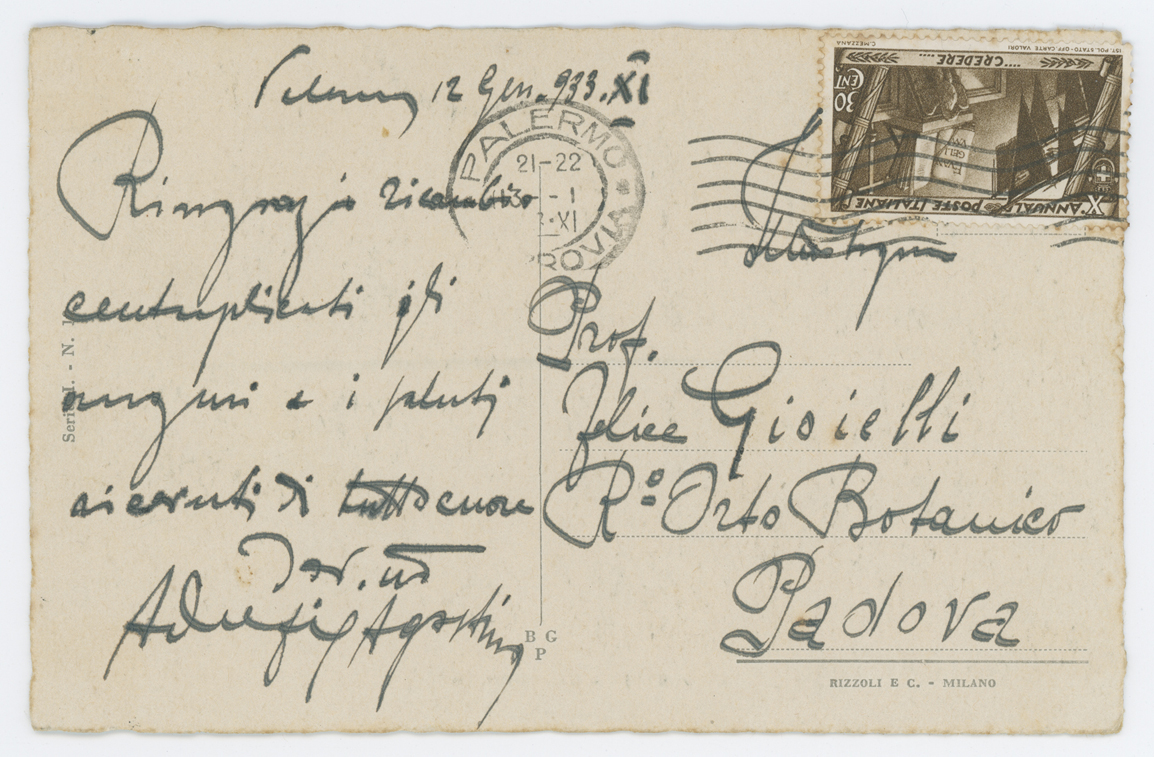 Palermo 12 Gen. 933. XI
Ringrazio ricambio
centuplicati gli
auguri e i saluti
ricevuti di tutto cuore
Dev. mo
Agostino
PALERMO
21-22
- I
XI
ROVIA
IST. POL. STATO-OFF. CARTE VALORI
C. MEZZANA
....CREDERE....
30
CENT
EVAN
GELI
X° ANNUALE
POSTE ITALIANE
Prof.
Felice Gioielli
Rº Orto Botanico
Padova
B G
P
RIZZOLI E C. - MILANO
Seri I. - N. 1